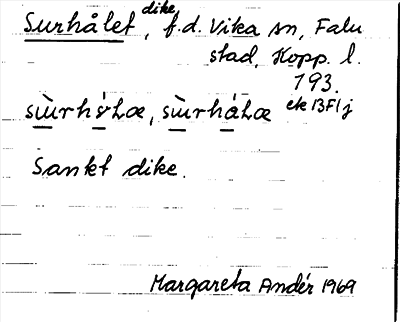 Surhålet, dike, f.d. Vika sn, Falu
stad, Kopp. l.
193.
ek 13F1j
Sankt dike.
Margareta Andér 1969